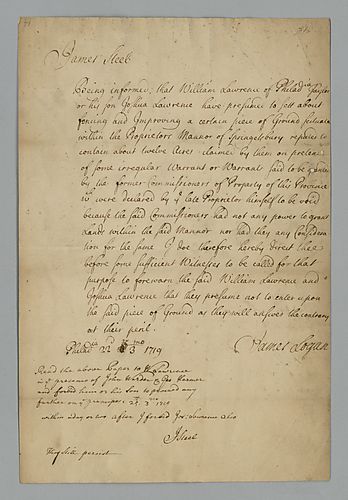 James Steel
Being informed, that William Lawrence of Philad
or his son Joshua Lawrence have presumed to sett about
fencing and Improving a certain piece of Ground situate
within the Proprietors Mannor of Springetsbury reputed to
contain about twelve Acres claimed by them on pretence
of some irregular Warrant or Warrants said to be granted
by the former Commissioners of Property of this Province
were declared by late Proprietor himself to be void
because the said Commissioners had not any power to grant
Lands within the said Mannor nor had they any Considera
tion for the same I doe therefore hereby direct thee
before some sufficient Witnesses to be called for that
purpose to forewarn the said William Lawrence and
Joshua Lawrence that they presume not to enter upon
the said piece of Ground as they will answer the contrary
at their peril.
Philad 22 3 mo 1719
James Logan
Read the above Paper to
in presence of John Warder & Geo
and forbid him or his Son to proceed any
further 3 1719
within a day or two after I forbid Jos: Lawrence also
JSteel
They still persist